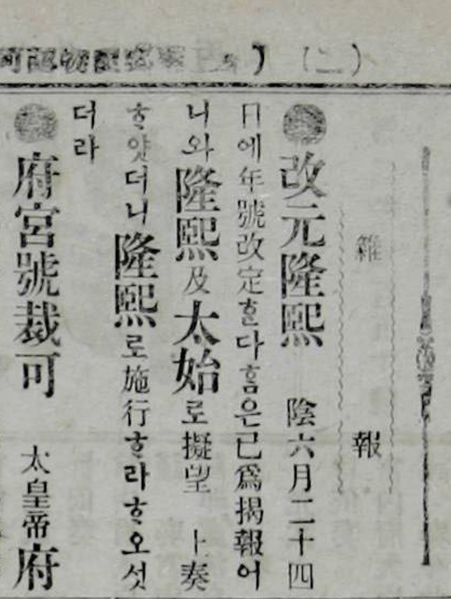 (二)
雜報
改元隆熙 陰六月二十四
日에年號改定ᄒᆞᆫ다ᄒᆞᆷ은已爲揭報어
니와隆熙及太始로擬望 上奏
ᄒᆞ얏더니隆熙로施行ᄒᆞ라ᄒᆞ오셧
더라
府宮號裁可 太皇帝府